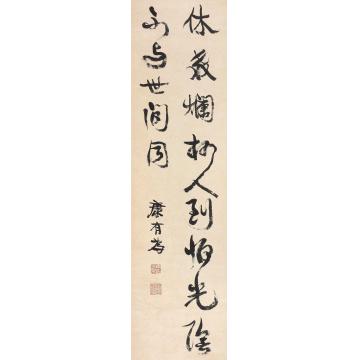 休教爛柯人到怕光陰
不与世間同
康有為